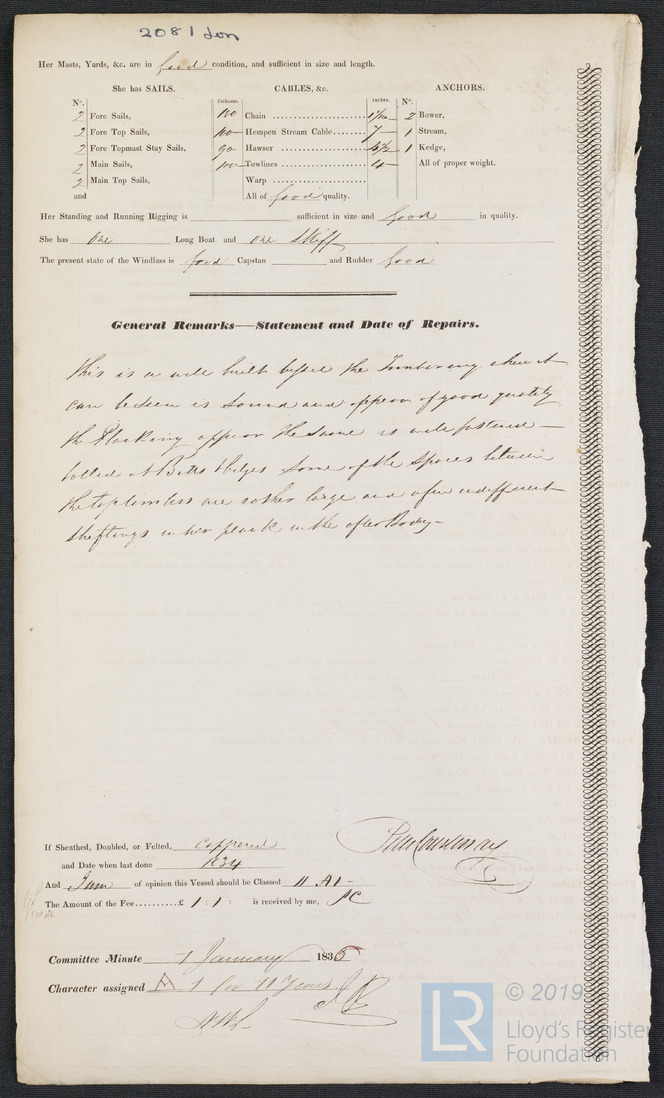 2081 Lon
Her Masts, Yards, &c. are in Good condition, and sufficient in size and length.
She has SAILS. CABLES, &c. ANCHORS.
N°. Fathoms. Inches. N°.
2 Fore Sails, Chain 2 Bower,
2 Fore Top Sails, Hempen Stream Cable 7 1 Stream,
2 Fore Topmast Stay Sails, 90 Hawser 1 Kedge,
2 Main Sails, 100 Towlines 4 All of proper weight.
2 Main Top Sails, Warp
and All of Good quality.
Her Standing and Running Rigging is sufficient in size and Good in quality.
She has One Long Boat and one Skiff
The present state of the Windlass is Good Capstan and Rudder Good
General Remarks—Statement and Date of Repairs.
This is a well built the Timbering when it
can be seen is sound and appear of good quality
the Planking appear the same is well fastened —
bolted Bilges some of the spaces between
the toptimbers are rather large and a few indifferent
shiftings in her plank in the after Body —
If Sheathed, Doubled, or Felted, Coppered
and Date when last done 1834
And I am of opinion this Vessel should be Classed 11 A1 -
The Amount of the Fee £ 1 : 1 : is received by me, PC
Committee Minute 1 January 1836
Character assigned A 1 for 11 Years
© 2019
LR
Lloyd's Register
Foundation